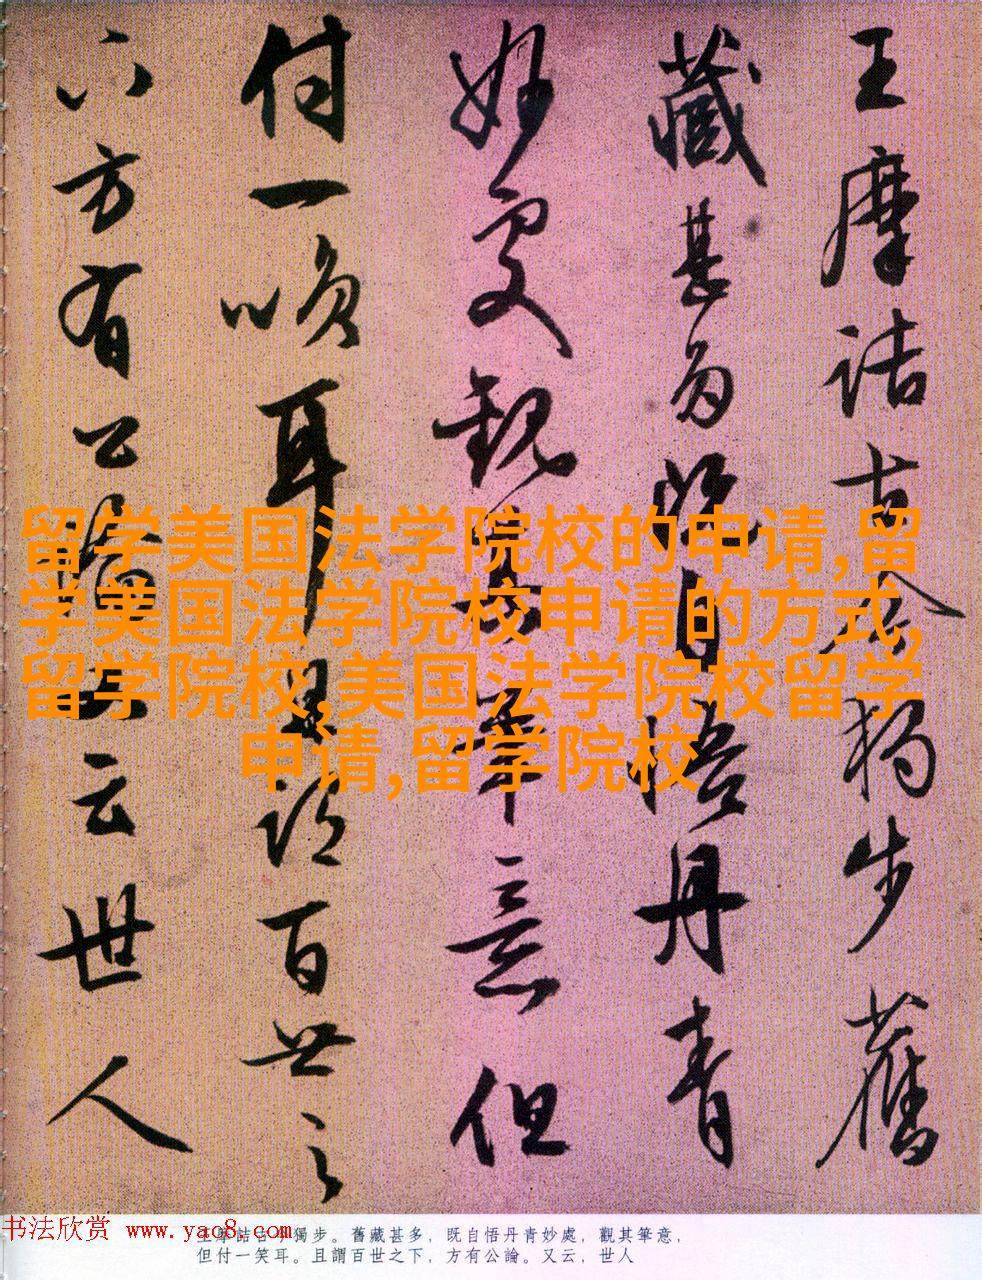 王摩詰古今獨步舊
藏甚多既自悟丹青
妙處觀其筆意但
付一笑耳且謂百世之
下方有公論又云世人
留学美国法学院校的申请,留
学美国法学院校申请的方式,
留学院校,美国法学院校留学
申请,留学院校
书法欣赏 www.yac8.com
王摩詰古今獨步。舊藏甚多，既自悟丹青妙處，觀其筆意，
但付一笑耳。且謂百世之下，方有公論。又云，世人